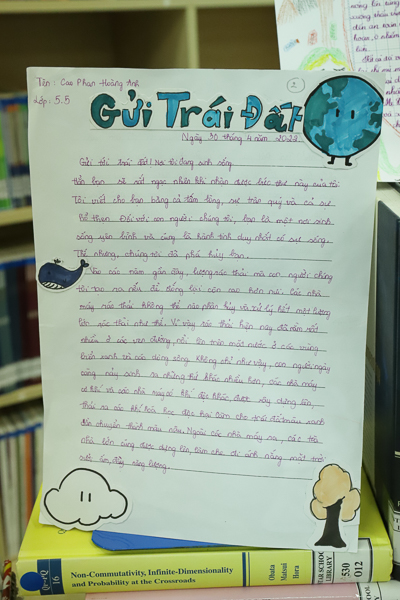 Tên: Cao Phan Hoàng Anh
Lớp: 5.5
2
Gửi Trái Đất
Ngày 30 tháng 4 năm 2023
Gửi tới trái đất! Nơi tôi đang sinh sống.
Hẳn bạn sẽ rất ngạc nhiên khi nhận được bức thư này của tôi
Tôi viết cho bạn bằng cả tấm lòng, sự trân quý và cả sự
hổ thẹn. Đối với con người chúng tôi, bạn là một nơi sinh
sống yên bình và cũng là hành tinh duy nhất có sự sống.
Thế nhưng, chúng tôi đã phá hủy bạn.
Vào các năm gần đây, lượng rác thải mà con người chúng
tôi tạo ra nếu để tổng lại còn cao hơn núi. Các nhà
máy rác thải không thể nào phân hủy và xử lý hết một lượng
lớn rác thải như thế. Vì vậy rác thải hiện nay đã dần rất
nhiều ở các ven đường, nổi lên trên mặt nước ở các vùng
biển xanh và các dòng sông. Không chỉ như vậy, con người ngày
càng nảy sinh ra những thứ khác nhiều hơn, các nhà máy
cơ khí và các nhà máy xí khí độc khác được xây dựng lên,
thải ra các khí hóa học độc hại làm cho trái đất màu xanh
dần chuyển thành màu nâu. Ngoài các nhà máy ra, các tòa
nhà lớn cũng được dựng lên, làm che đi ánh nắng mặt trời
rực ấm, đầy năng lượng.
QI-rQ
16
Non-Commutativity, Infinite-Dimensionality
and Probability at the Crossroads
Obata
Matsui
Hora
STAR SCHOOL
LIBRARY
530
O12
STAR SCHOOL